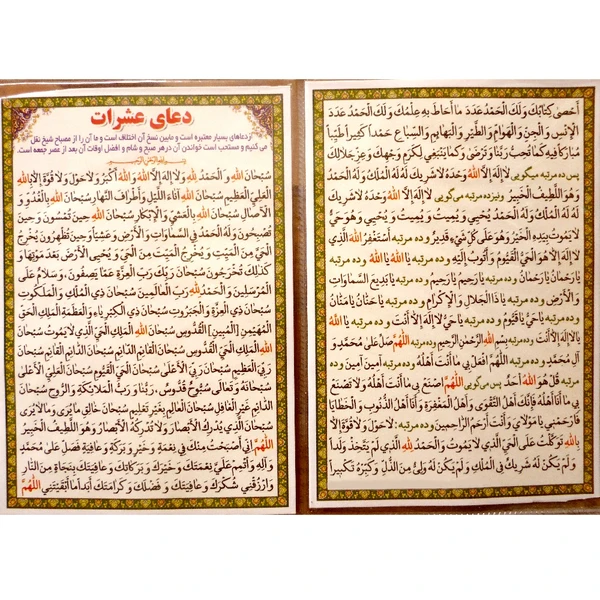 دعای عشرات
ازدعاهای بسیار معتبره است و مابین نسخ آن اختلاف است و ما آن را از مصباح شیخ نقل
می کنیم و مستحب است خواندن آن درهر صبح و شام و افضل اوقات آن بعد از عصر جمعه است.
بسم الله الرحمن الرحیم
سُبْحَانَ اللَّهِ وَ الْحَمْدُ لِلَّهِ وَ لا إِلَهَ إِلا اللَّهُ وَ اللَّهُ أَكْبَرُ وَ لا حَوْلَ وَ لا قُوَّةَ إِلا بِاللَّهِ
الْعَلِيِّ الْعَظِيمِ سُبْحَانَ اللَّهِ آنَاءَ اللَّيْلِ وَ أَطْرَافَ النَّهَارِ سُبْحَانَ اللَّهِ بِالْغُدُوِّ وَ
الْآصَالِ سُبْحَانَ اللَّهِ بِالْعَشِيِّ وَ الْإِبْكَارِ سُبْحَانَ اللَّهِ حِينَ تُمْسُونَ وَ حِينَ
تُصْبِحُونَ وَ لَهُ الْحَمْدُ فِي السَّمَاوَاتِ وَ الْأَرْضِ وَ عَشِيًّا وَ حِينَ تُظْهِرُونَ يُخْرِجُ
الْحَيَّ مِنَ الْمَيِّتِ وَ يُخْرِجُ الْمَيِّتَ مِنَ الْحَيِّ وَ يُحْيِي الْأَرْضَ بَعْدَ مَوْتِهَا وَ
كَذَلِكَ تُخْرَجُونَ سُبْحَانَ رَبِّكَ رَبِّ الْعِزَّةِ عَمَّا يَصِفُونَ، وَ سَلامٌ عَلَى
الْمُرْسَلِينَ وَ الْحَمْدُ لِلَّهِ رَبِّ الْعَالَمِينَ سُبْحَانَ ذِي الْمُلْكِ وَ الْمَلَكُوتِ
سُبْحَانَ ذِي الْعِزَّةِ وَ الْجَبَرُوتِ سُبْحَانَ ذِي الْكِبْرِيَاءِ وَ الْعَظَمَةِ الْمَلِكِ الْحَقِّ
الْمُهَيْمِنِ [الْمُبِينِ] الْقُدُّوسِ سُبْحَانَ اللَّهِ الْمَلِكِ الْحَيِّ الَّذِي لا يَمُوتُ سُبْحَانَ
اللَّهِ الْمَلِكِ الْحَيِّ الْقُدُّوسِ سُبْحَانَ الْقَائِمِ الدَّائِمِ سُبْحَانَ الدَّائِمِ الْقَائِمِ سُبْحَانَ
رَبِّيَ الْعَظِيمِ سُبْحَانَ رَبِّيَ الْأَعْلَى سُبْحَانَ الْحَيِّ الْقَيُّومِ سُبْحَانَ الْعَلِيِّ الْأَعْلَى
سُبْحَانَهُ وَ تَعَالَى سُبُّوحٌ قُدُّوسٌ، رَبُّنَا وَ رَبُّ الْمَلائِكَةِ وَ الرُّوحِ سُبْحَانَ
الدَّائِمِ غَيْرِ الْغَافِلِ سُبْحَانَ الْعَالِمِ بِغَيْرِ تَعْلِيمٍ سُبْحَانَ خَالِقِ مَا يُرَى وَ مَا لا يُرَى
سُبْحَانَ الَّذِي يُدْرِكُ الْأَبْصَارَ وَ لا تُدْرِكُهُ الْأَبْصَارُ وَ هُوَ اللَّطِيفُ الْخَبِيرُ
اللَّهُمَّ إِنِّي أَصْبَحْتُ مِنْكَ فِي نِعْمَةٍ وَ خَيْرٍ وَ بَرَكَةٍ وَ عَافِيَةٍ فَصَلِّ عَلَى مُحَمَّدٍ
وَ آلِهِ وَ أَتْمِمْ عَلَيَّ نِعْمَتَكَ وَ خَيْرَكَ وَ بَرَكَاتِكَ وَ عَافِيَتَكَ بِنَجَاةٍ مِنَ النَّارِ
وَ ارْزُقْنِي شُكْرَكَ وَ عَافِيَتَكَ وَ فَضْلَكَ وَ كَرَامَتَكَ أَبَدًا مَا أَبْقَيْتَنِي اللَّهُمَّ
أَحْصَى كِتَابُكَ وَ لَكَ الْحَمْدُ عَدَدَ مَا أَحَاطَ بِهِ عِلْمُكَ وَ لَكَ الْحَمْدُ عَدَدَ
الْإِنْسِ وَ الْجِنِّ وَ الْهَوَامِّ وَ الطَّيْرِ وَ الْبَهَائِمِ وَ السِّبَاعِ حَمْدًا كَثِيرًا طَيِّبًا
مُبَارَكًا فِيهِ كَمَا تُحِبُّ رَبَّنَا وَ تَرْضَى وَ كَمَا يَنْبَغِي لِكَرَمِ وَجْهِكَ وَ عِزِّ جَلالِكَ
پس ده مرتبه میگویی لا إِلَهَ إِلا اللَّهُ وَحْدَهُ لا شَرِيكَ لَهُ لَهُ الْمُلْكُ وَ لَهُ الْحَمْدُ
وَ هُوَ اللَّطِيفُ الْخَبِيرُ ونیزده مرتبه می‌گویی لا إِلَهَ إِلا اللَّهُ وَحْدَهُ لا شَرِيكَ
لَهُ لَهُ الْمُلْكُ وَ لَهُ الْحَمْدُ يُحْيِي وَ يُمِيتُ وَ يُمِيتُ وَ يُحْيِي وَ هُوَ حَيٌّ
لا يَمُوتُ بِيَدِهِ الْخَيْرُ وَ هُوَ عَلَى كُلِّ شَيْءٍ قَدِيرٌ و ده مرتبه أَسْتَغْفِرُ اللَّهَ الَّذِي
لا إِلَهَ إِلا هُوَ الْحَيُّ الْقَيُّومُ وَ أَتُوبُ إِلَيْهِ و ده مرتبه يَا اللَّهُ يَا اللَّهُ و ده مرتبه
يَا رَحْمَانُ يَا رَحْمَانُ و ده مرتبه يَا رَحِيمُ يَا رَحِيمُ و ده مرتبه يَا بَدِيعَ السَّمَاوَاتِ
وَ الْأَرْضِ و ده مرتبه يَا ذَا الْجَلالِ وَ الْإِكْرَامِ و ده مرتبه يَا حَنَّانُ يَا مَنَّانُ
و ده مرتبه يَا حَيُّ يَا قَيُّومُ و ده مرتبه يَا حَيُّ لا إِلَهَ إِلا أَنْتَ و ده مرتبه يَا اللَّهُ
يَا لا إِلَهَ إِلا أَنْتَ وده مرتبه بِسْمِ اللَّهِ الرَّحْمَنِ الرَّحِيمِ وده مرتبه اللَّهُمَّ صَلِّ عَلَى مُحَمَّدٍ وَ
آلِ مُحَمَّدٍ و ده مرتبه اللَّهُمَّ افْعَلْ بِي مَا أَنْتَ أَهْلُهُ وده مرتبه آمِينَ آمِينَ وده
مرتبه قُلْ هُوَ اللَّهُ أَحَدٌ پس می‌گویی اللَّهُمَّ اصْنَعْ بِي مَا أَنْتَ أَهْلُهُ وَ لا تَصْنَعْ
بِي مَا أَنَا أَهْلُهُ فَإِنَّكَ أَهْلُ التَّقْوَى وَ أَهْلُ الْمَغْفِرَةِ وَ أَنَا أَهْلُ الذُّنُوبِ وَ الْخَطَايَا
فَارْحَمْنِي يَا مَوْلايَ وَ أَنْتَ أَرْحَمُ الرَّاحِمِينَ و ده مرتبه : لا حَوْلَ وَ لا قُوَّةَ إِلا
بِاللَّهِ تَوَكَّلْتُ عَلَى الْحَيِّ الَّذِي لا يَمُوتُ وَ الْحَمْدُ لِلَّهِ الَّذِي لَمْ يَتَّخِذْ وَلَدًا
وَ لَمْ يَكُنْ لَهُ شَرِيكٌ فِي الْمُلْكِ وَ لَمْ يَكُنْ لَهُ وَلِيٌّ مِنَ الذُّلِّ وَ كَبِّرْهُ تَكْبِيرًا